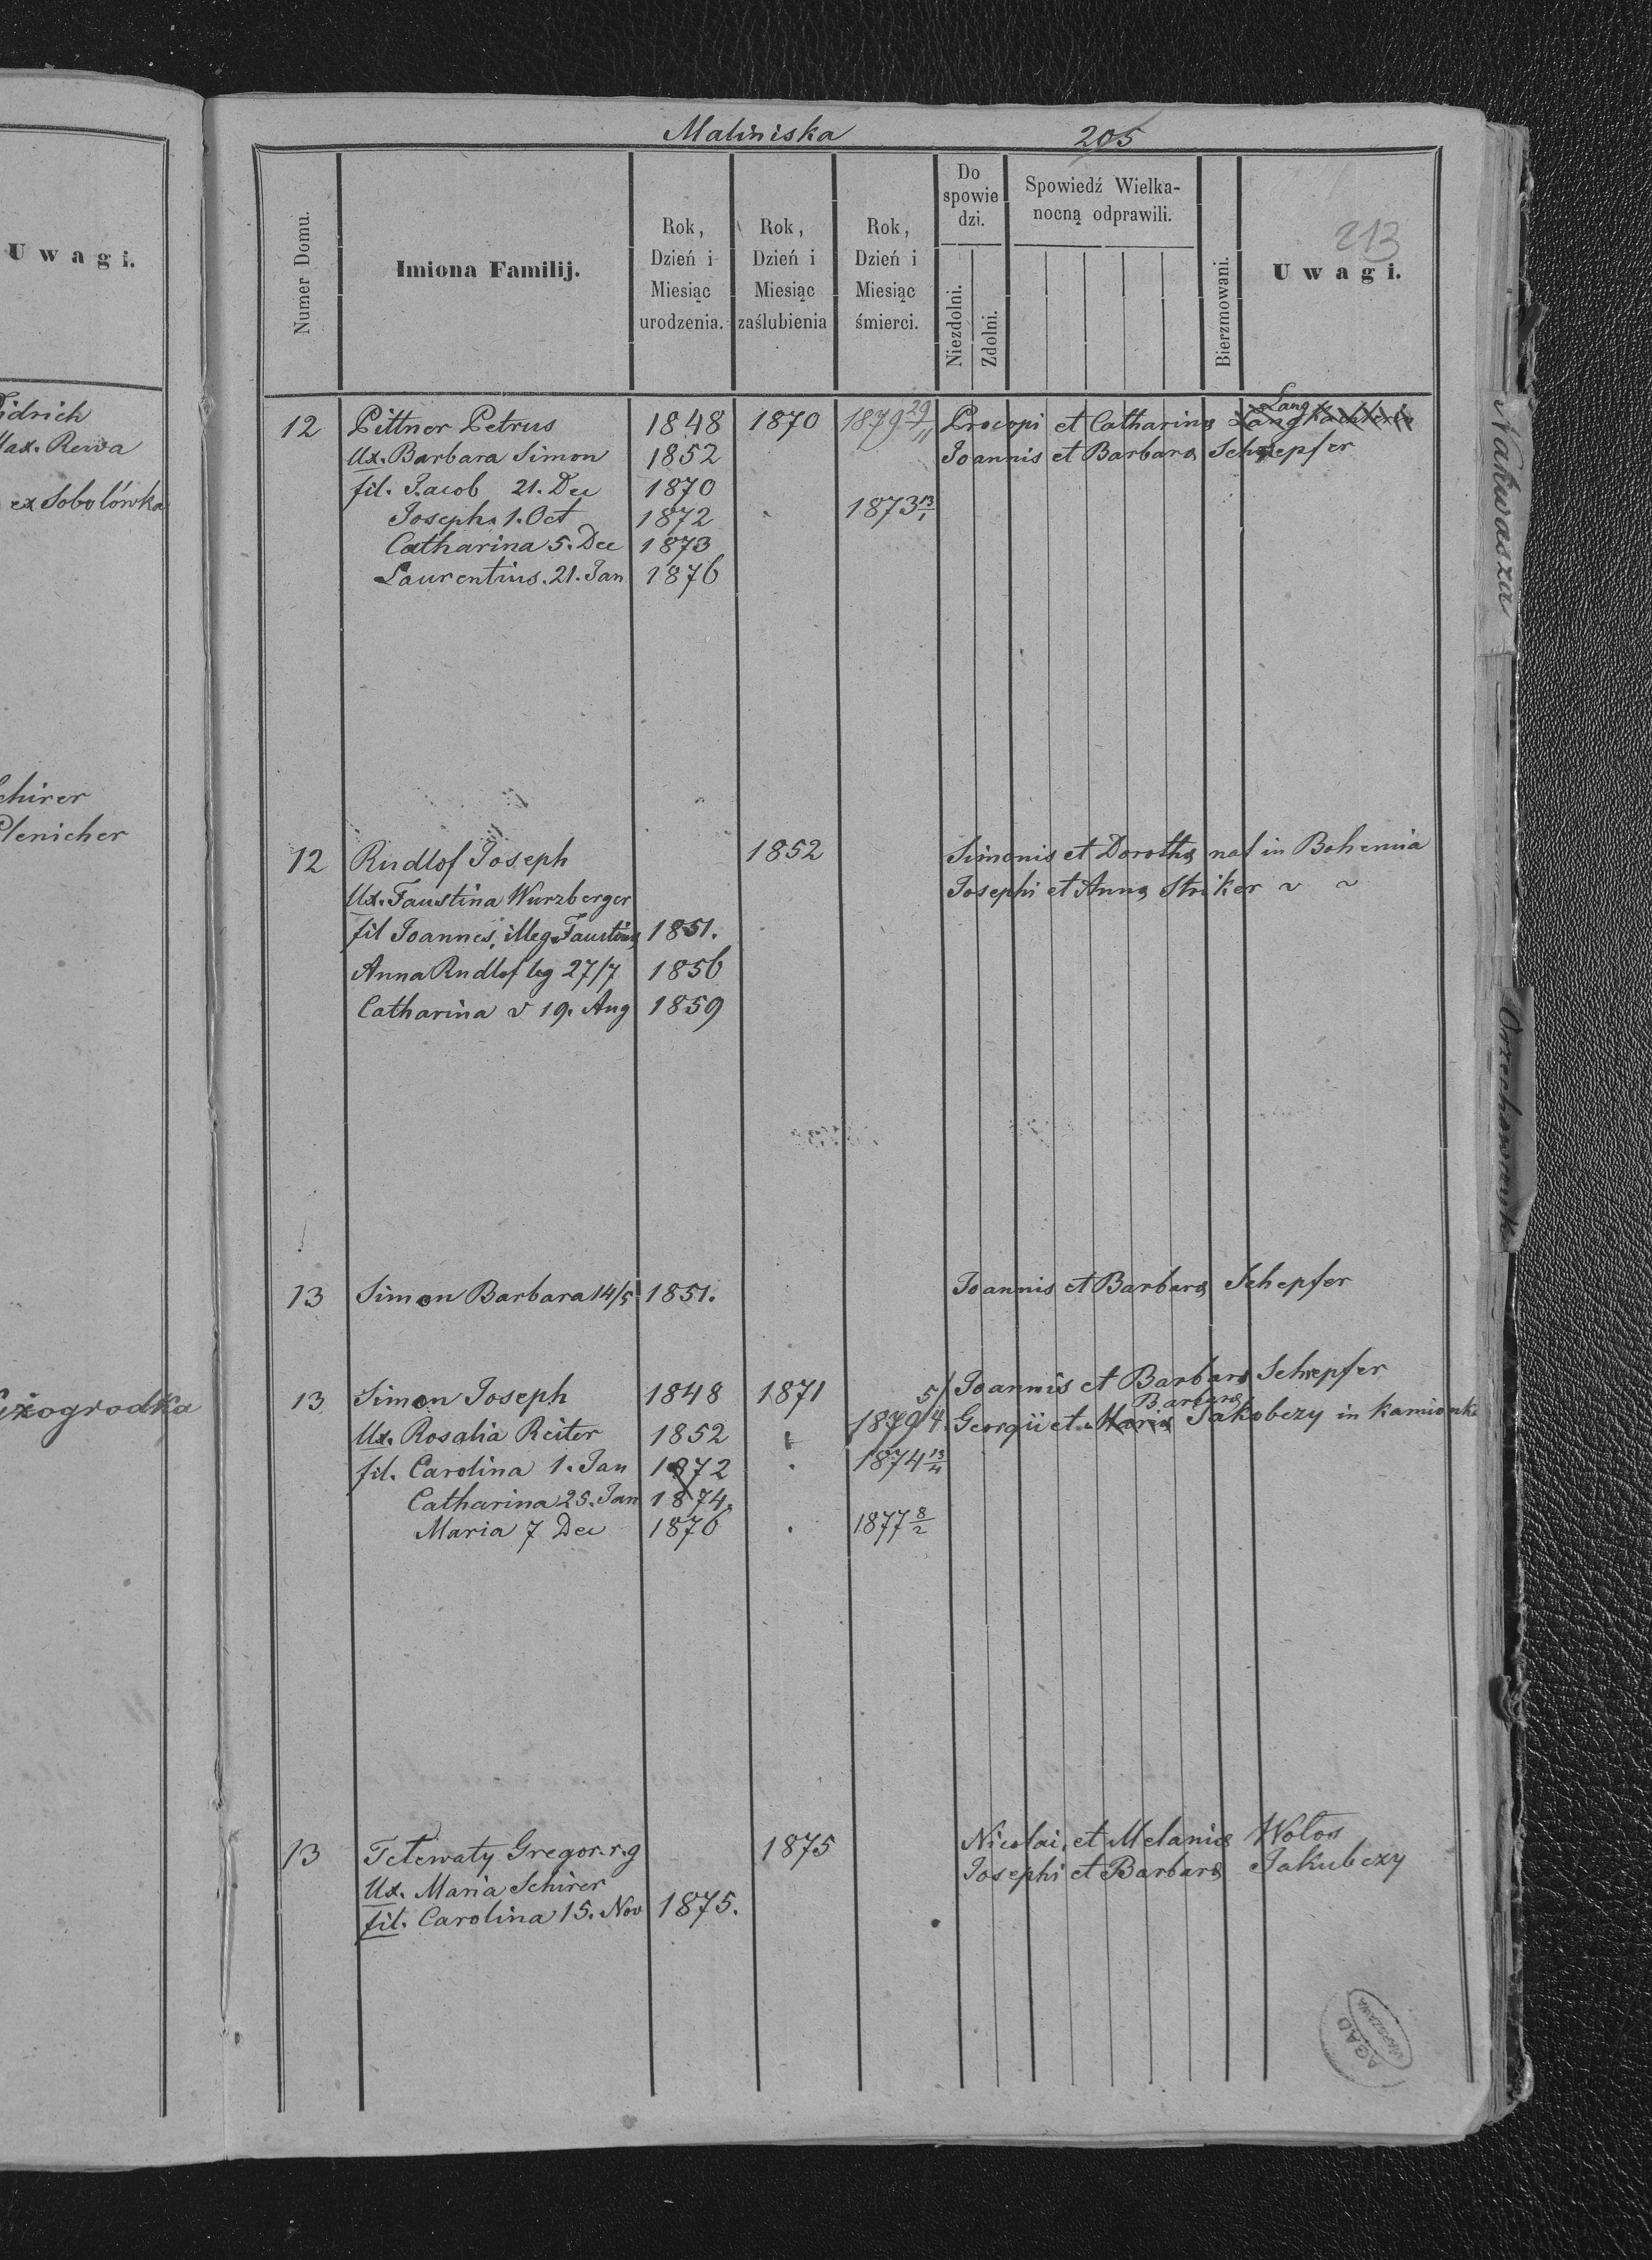 Uwagi.
idrich
Max. Rewa
ex Sobolówka
chirer
Plenicher
iżogrodka
Maliniska 205
213
Numer Domu.
Imiona Familij.
Rok, Dzień i Miesiąc urodzenia.
Rok, Dzień i Miesiąc zaślubienia
Rok, Dzień i Miesiąc śmierci.
Do spowiedzi.
Niezdolni.
Zdolni.
Spowiedź Wielkanocną odprawili.
Bierzmowani.
Uwagi.
12 Pittner Petrus 1848 1870 1879 29/11 Procopi et Catharina Lang
Ux. Barbara Simon 1852 Joannis et Barbara Schepfer
fil. Jacob 21. Dec 1870
Joseph 1. Oct 1872 1873 13/1
Catharina 5. Dec 1873
Laurentius. 21. Jan 1876
12 Rudlof Joseph 1852 Simonis et Doroth nat in Bohemia
Ux. Faustina Wurzberger Josephi et Anna Striker ~ ~
fil Joannes, illeg. Faustina 1851.
Anna Rudlof leg 27/7 1856
Catharina v 19. Aug 1859
13 Simon Barbara 14/5 1851. Joannis et Barbara Schepfer
13 Simon Joseph 1848 1871 Joannis et Barbara Schepfer
Barbara
Ux. Rosalia Reiter 1852 1879 5/4. Georgii et Maria Jakobczy in Kamionka
fil. Carolina 1. Jan 1872 1874 13/4
Catharina 25. Jan 1874.
Maria 7 Dec 1876 1877 8/2
13 Tetewaty Gregor. r. g 1875 Nicolai, et Melania Wołos
Ux. Maria Schirer Josephi et Barbara Jakubczy
fil. Carolina 15. Nov 1875.
AGAD
WARSZAWA
Nakwasza
Orzechowczyk